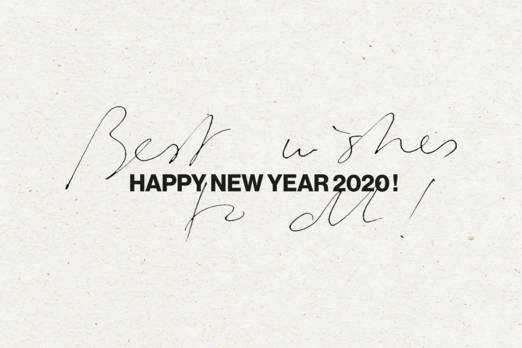 Best wishes
HAPPY NEW YEAR 2020!
to all!